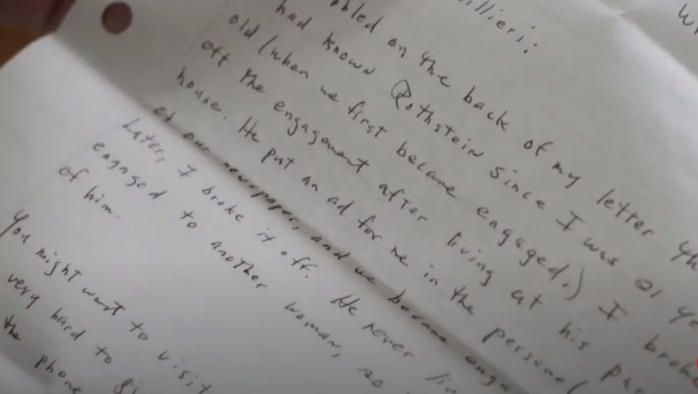 Wh
illieri:
bled on the back of my letter th
had known Rothstein since I was 21 ye
old (when we first became engaged.) I broke
off the engagement after living at his par
house. He put an ad for me in the personal
of our newspaper, and we became enga
Later, I broke it off. He never liv
engaged to another woman, so
of him.
You might want to visit
very hard to
the phone